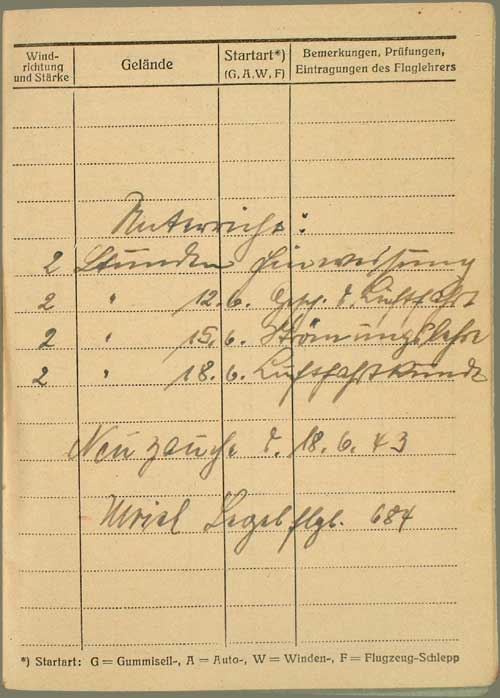 Wind-
richtung
und Stärke
Gelände
Startart*)
(G, A, W, F)
Bemerkungen, Prüfungen,
Eintragungen des Fluglehrers
Unterricht:
2 Stunden Einweisung
2 " 12. 6. d. Luftfahrt
2 " 15. 6. Strömungslehre
2 " 18. 6. Luftfahrtkunde
Neuzauche d. 18. 6. 43
Segelflgl. 684
*) Startart: G = Gummiseil-, A = Auto-, W = Winden-, F = Flugzeug-Schlepp